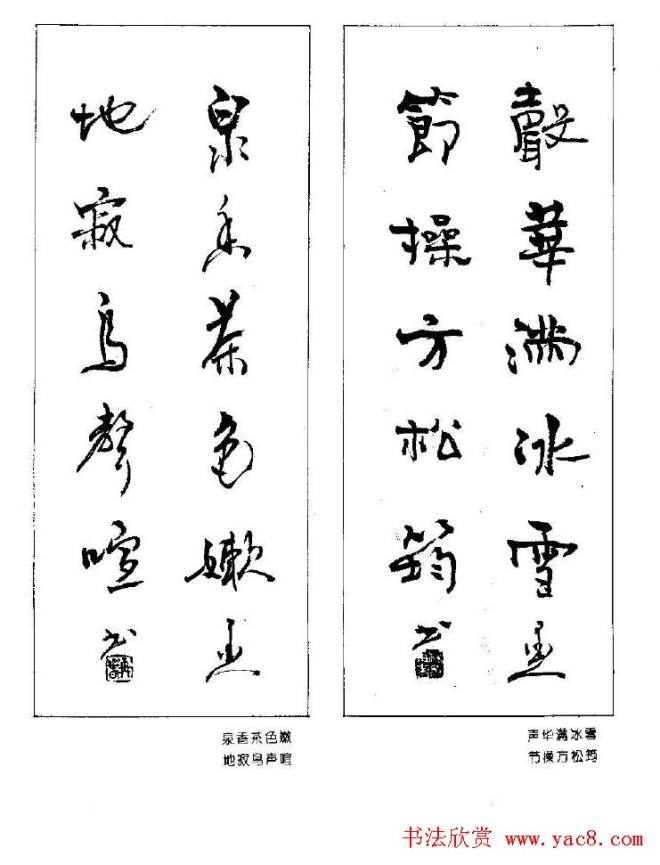 聲華滿冰雪
節操方松筠书
泉香茶色嫩
地寂鳥聲喧书
声华满冰雪
节操方松筠
泉香茶色嫩
地寂鸟声喧
书法欣赏 www.yac8.com